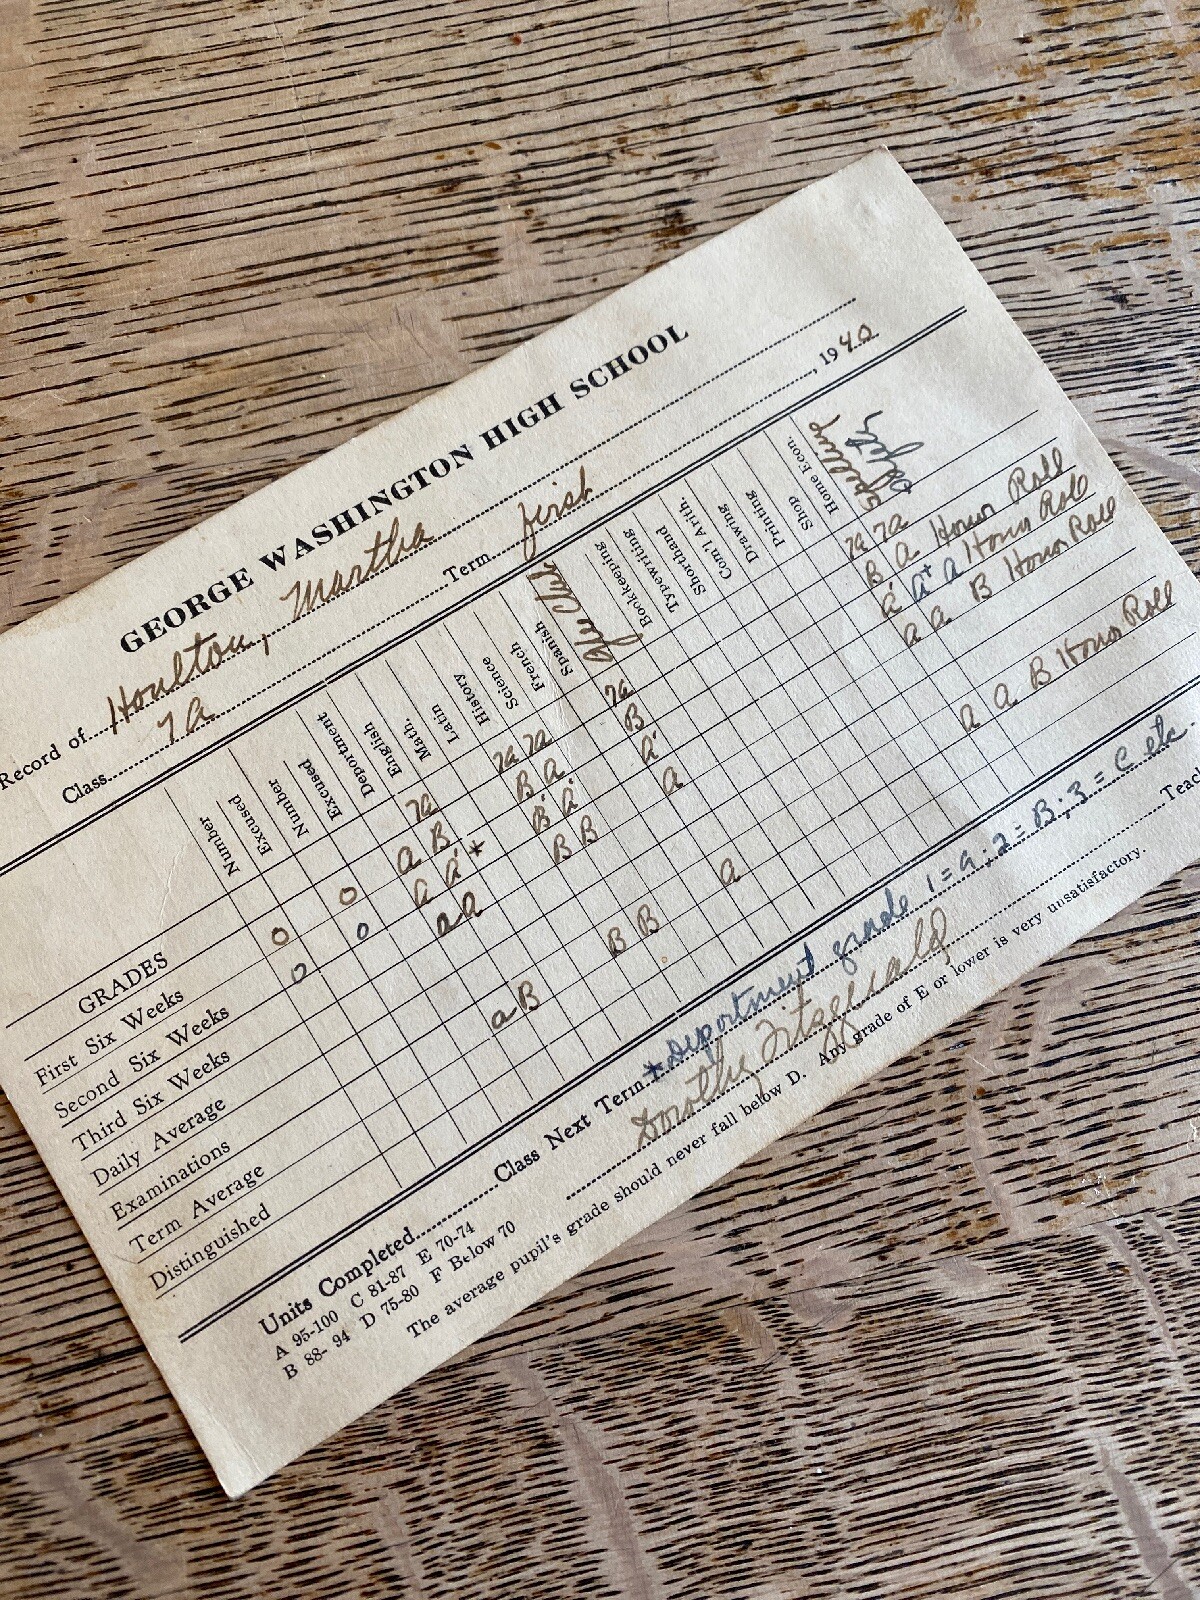 GEORGE WASHINGTON HIGH SCHOOL
Record of Houlton, Martha
Class 7a Term first, 1940
Number Excused Number Excused Deportment English Math. Latin History Science French Spanish Glee Club Bookkeeping Typewriting Shorthand Com'l Arith. Drawing Printing Shop Home Econ. Spelling
GRADES 7a 7a 7a 7a 7a 7a
First Six Weeks 0 0 a B B a B B a Honor Roll
Second Six Weeks 0 0 a a' * B' a' a' a' a+ a Honor Roll
Third Six Weeks a a B B a a a B Honor Roll
Daily Average
Examinations
Term Average a B B B a a a B Honor Roll
Distinguished
Units Completed Class Next Term * Deportment grade 1 = a ; 2 = B ; 3 = C etc.
A 95-100 C 81-87 E 70-74
B 88-94 D 75-80 F Below 70
Dorothy Fitzgerald Teac
The average pupil's grade should never fall below D. Any grade of E or lower is very unsatisfactory.